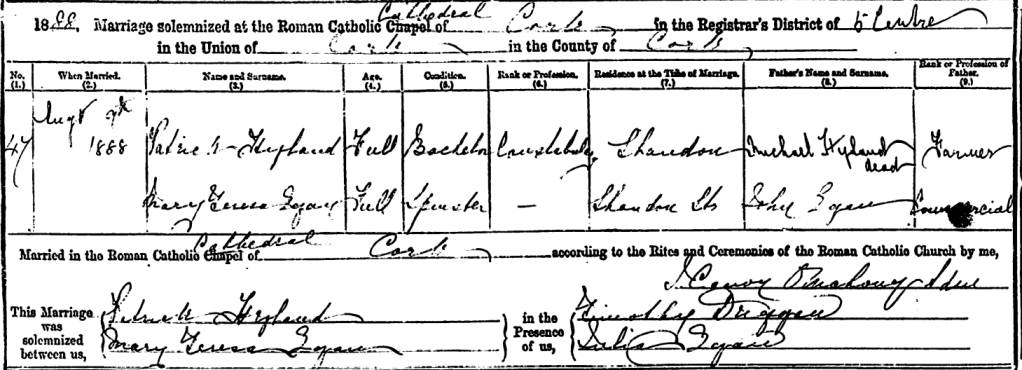 1888. Marriage solemnized at the Roman Catholic Chapel Cathedral of Cork in the Registrar's District of 5 Centre
in the Union of Cork in the County of Cork
No. When Married. Name and Surname. Age. Condition. Rank or Profession. Residence at the Time of Marriage. Father's Name and Surname. Rank or Profession of Father.
(1.) (2.) (3.) (4.) (5.) (6.) (7.) (8.) (9.)
47 Augt 1888 Patrick Hyland Full Bachelor Constable Shandon Michael Hyland dead Farmer
Mary Teresa Egan Full Spinster — Shandon St John Egan Commercial
Married in the Roman Catholic Chapel Cathedral of Cork according to the Rites and Ceremonies of the Roman Catholic Church by me,
O'Mahony Adm
This Marriage was solemnized between us,
Patrick Hyland
Mary Teresa Egan
in the Presence of us,
Timothy Duggan
Julia Egan